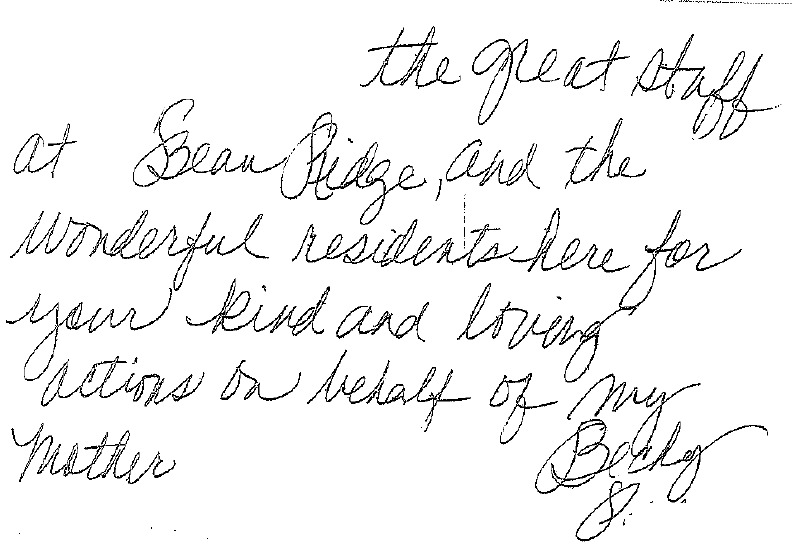 the great staff
at Bean Ridge, and the
wonderful residents here for
your kind and loving
actions on behalf of my
Mother Becky
S.